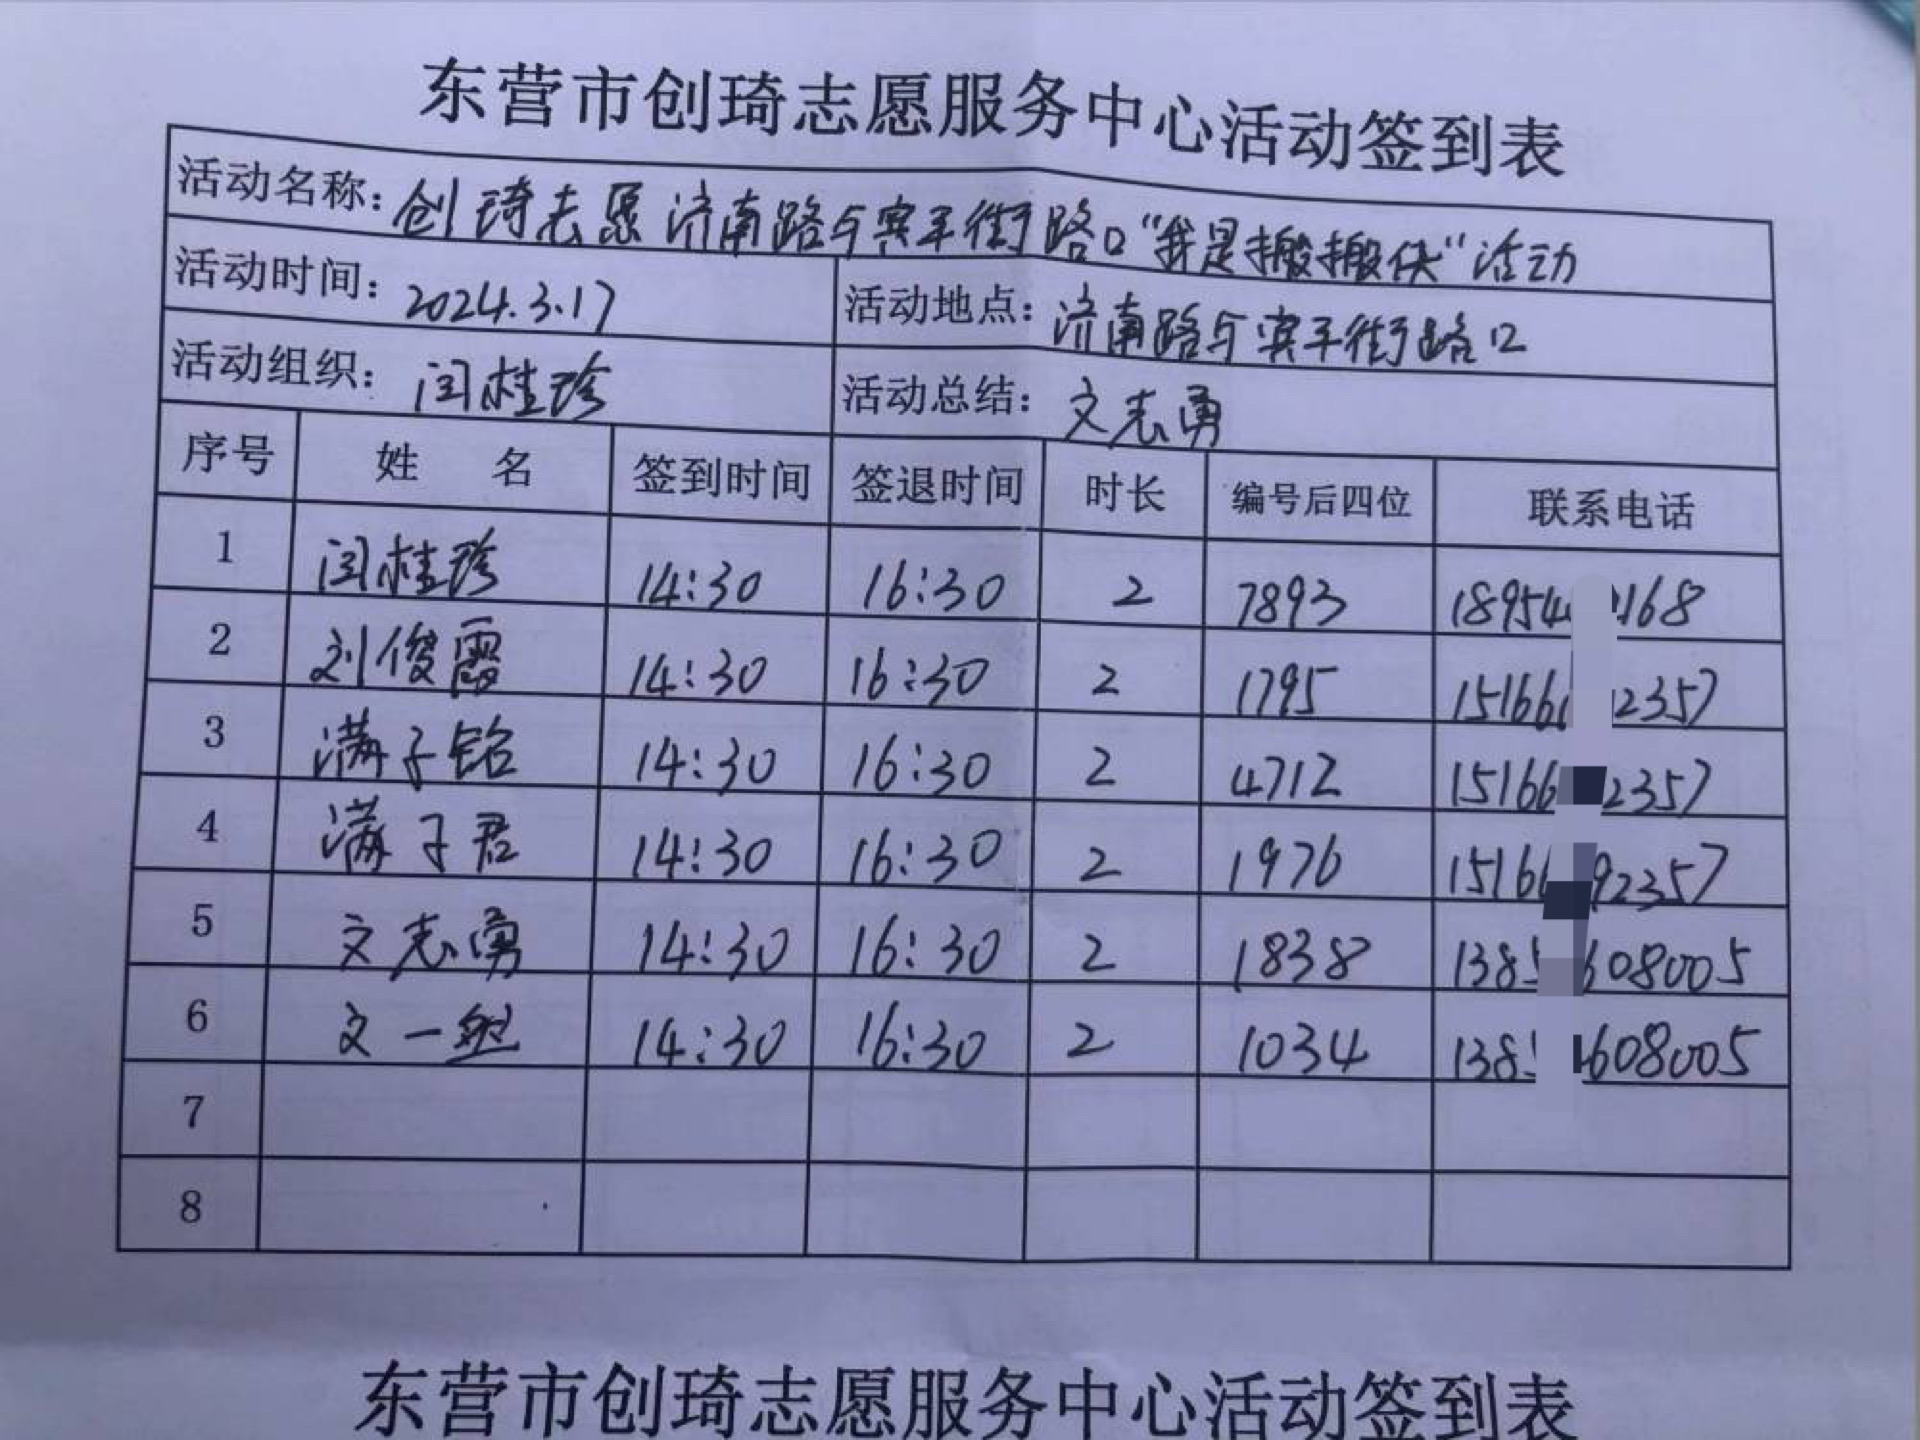 东营市创琦志愿服务中心活动签到表
活动名称：创琦志愿济南路与宾平街路口“我是搬搬侠”活动
活动时间：2024.3.17 活动地点：济南路与宾平街路口
活动组织：闫桂珍 活动总结：文志勇
序号 姓 名 签到时间 签退时间 时长 编号后四位 联系电话
1 闫桂珍 14:30 16:30 2 7893 18954 168
2 刘俊霞 14:30 16:30 2 1795 15166 2357
3 满子铭 14:30 16:30 2 4712 15166 2357
4 满子君 14:30 16:30 2 1976 1516 92357
5 文志勇 14:30 16:30 2 1838 138 608005
6 文一 14:30 16:30 2 1034 138 608005
7
8
东营市创琦志愿服务中心活动签到表